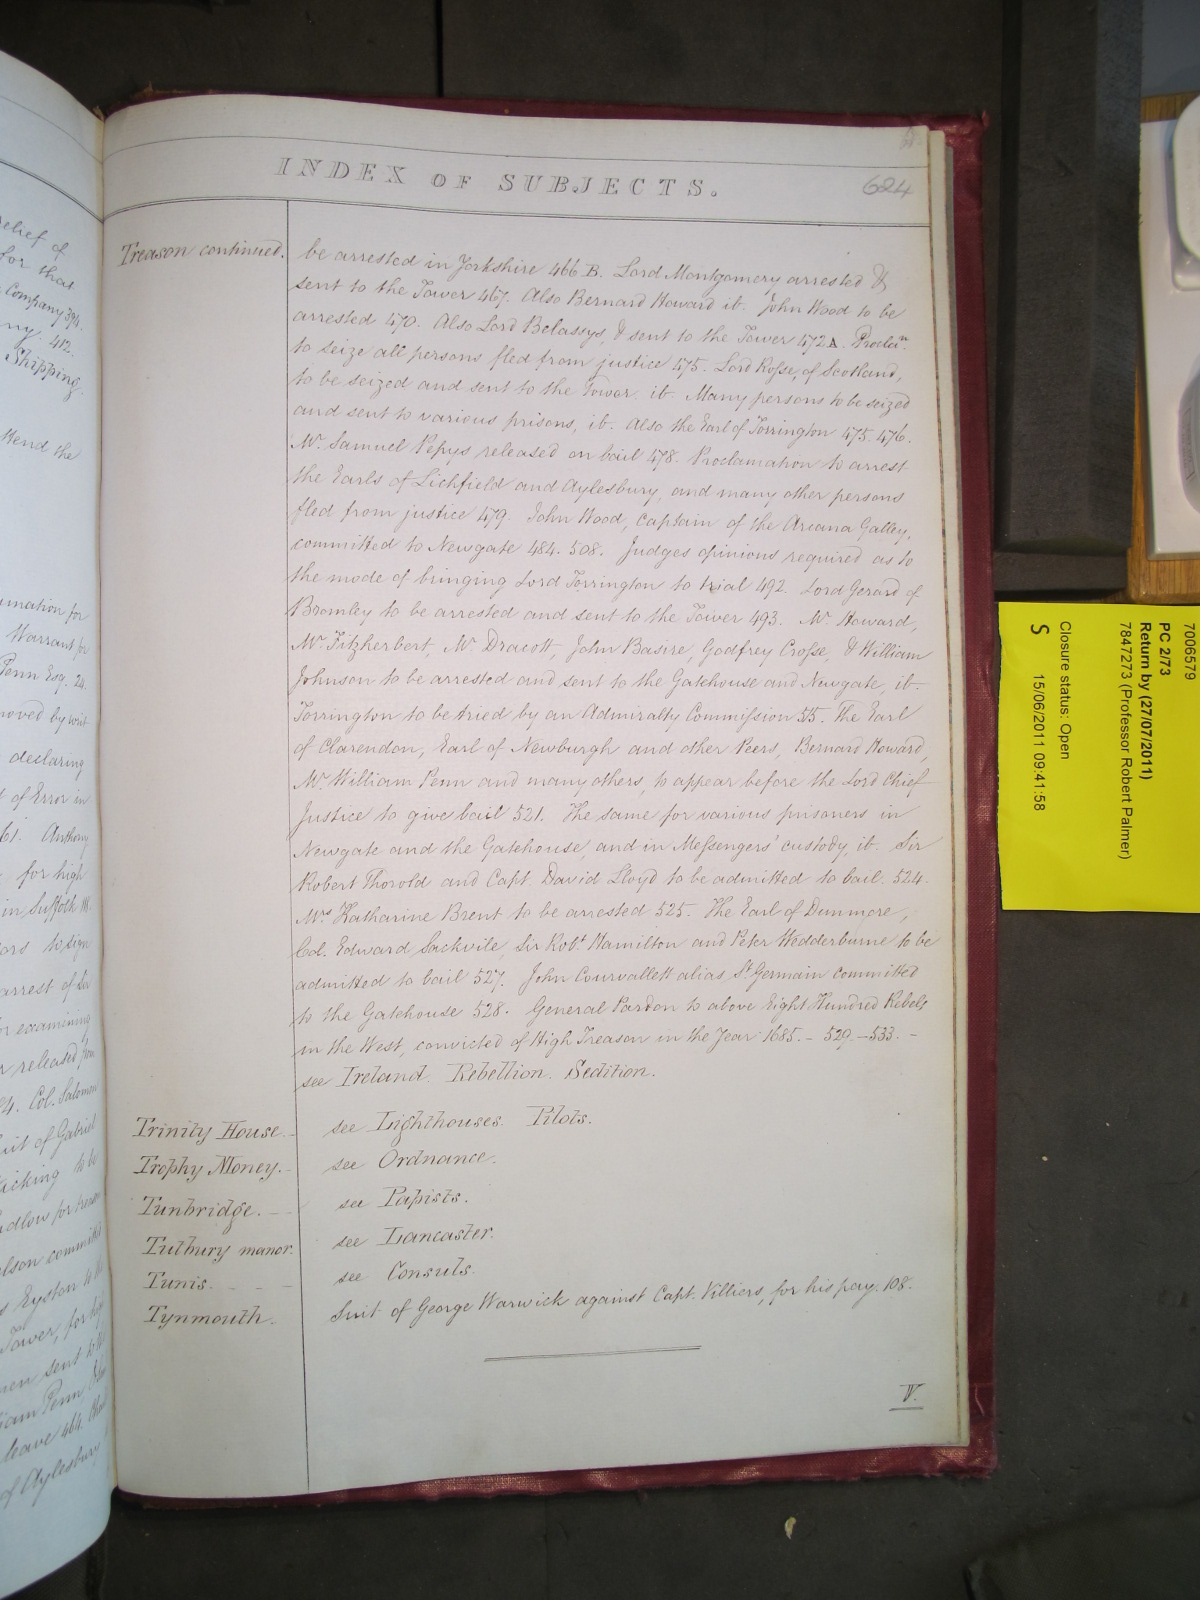 INDEX OF SUBJECTS.
624
Treason continued.
be arrested in Yorkshire 466 B. Lord Montgomery arrested &
sent to the Tower 467. Also Bernard Howard ib. John Wood to be
arrested 470. Also Lord Belassys, & sent to the Tower 472A. Proclan.
to seize all persons fled from justice 475. Lord Rosse, of Scotland,
to be seized and sent to the Tower. ib. Many persons to be seized
and sent to various prisons, ib. Also the Earl of Torrington 475. 476.
Mr. Samuel Pepys released on bail 478. Proclamation to arrest
the Earls of Lichfield and Aylesbury, and many other persons
fled from justice 479. John Wood, captain of the Arcana Galley,
committed to Newgate 484. 508. Judges opinions required as to
the mode of bringing Lord Torrington to trial 492. Lord Gerard of
Bromley to be arrested and sent to the Tower 493. Mr. Howard,
Mr. Fitzherbert, Mr. Dracott, John Basire, Godfrey Crosse, & William
Johnson to be arrested and sent to the Gatehouse and Newgate, ib.
Torrington to be tried by an Admiralty Commission 55. The Earl
of Clarendon, Earl of Newburgh and other Peers, Bernard Howard,
Mr. William Penn and many others, to appear before the Lord Chief
Justice to give bail 521. The same for various prisoners in
Newgate and the Gatehouse, and in Messengers' custody, ib. Sir
Robert Thorold and Capt. David Lloyd to be admitted to bail. 524.
Mrs Katharine Brent to be arrested 525. The Earl of Dunmore,
Col. Edward Sackvile, Sir Robt. Hamilton and Peter Wedderburne to be
admitted to bail 527. John Courvallett alias St Germain committed
to the Gatehouse 528. General Pardon to above Eight Hundred Rebels
in the West, convicted of High Treason in the Year 1685. - 529.-533. -
see Ireland. Rebellion. Sedition.
Trinity House. - see Lighthouses. Pilots.
Trophy Money. - see Ordnance.
Tunbridge. - see Papists.
Tutbury manor. see Lancaster.
Tunis. - - - see Consuls.
Tynmouth. Suit of George Warwick against Capt. Villiers, for his pay. 108.
V.
relief of
for that
Company 394.
412.
Shipping.
attend the
Warrant for
Penn Esq. 24.
declaring
of Error in
61. Anthony
for high
in Suffolk
to sign
arrest of
examining
released from
Col. Salomon
suit of Gabriel
to be
committed
Eyston to be
Tower, for high
sent to
William Penn
leave 464.
of Aylesbury
7006579
PC 2/73
Return by (27/07/2011)
7847273 (Professor Robert Palmer)
Closure status: Open
S 15/06/2011 09:41:58